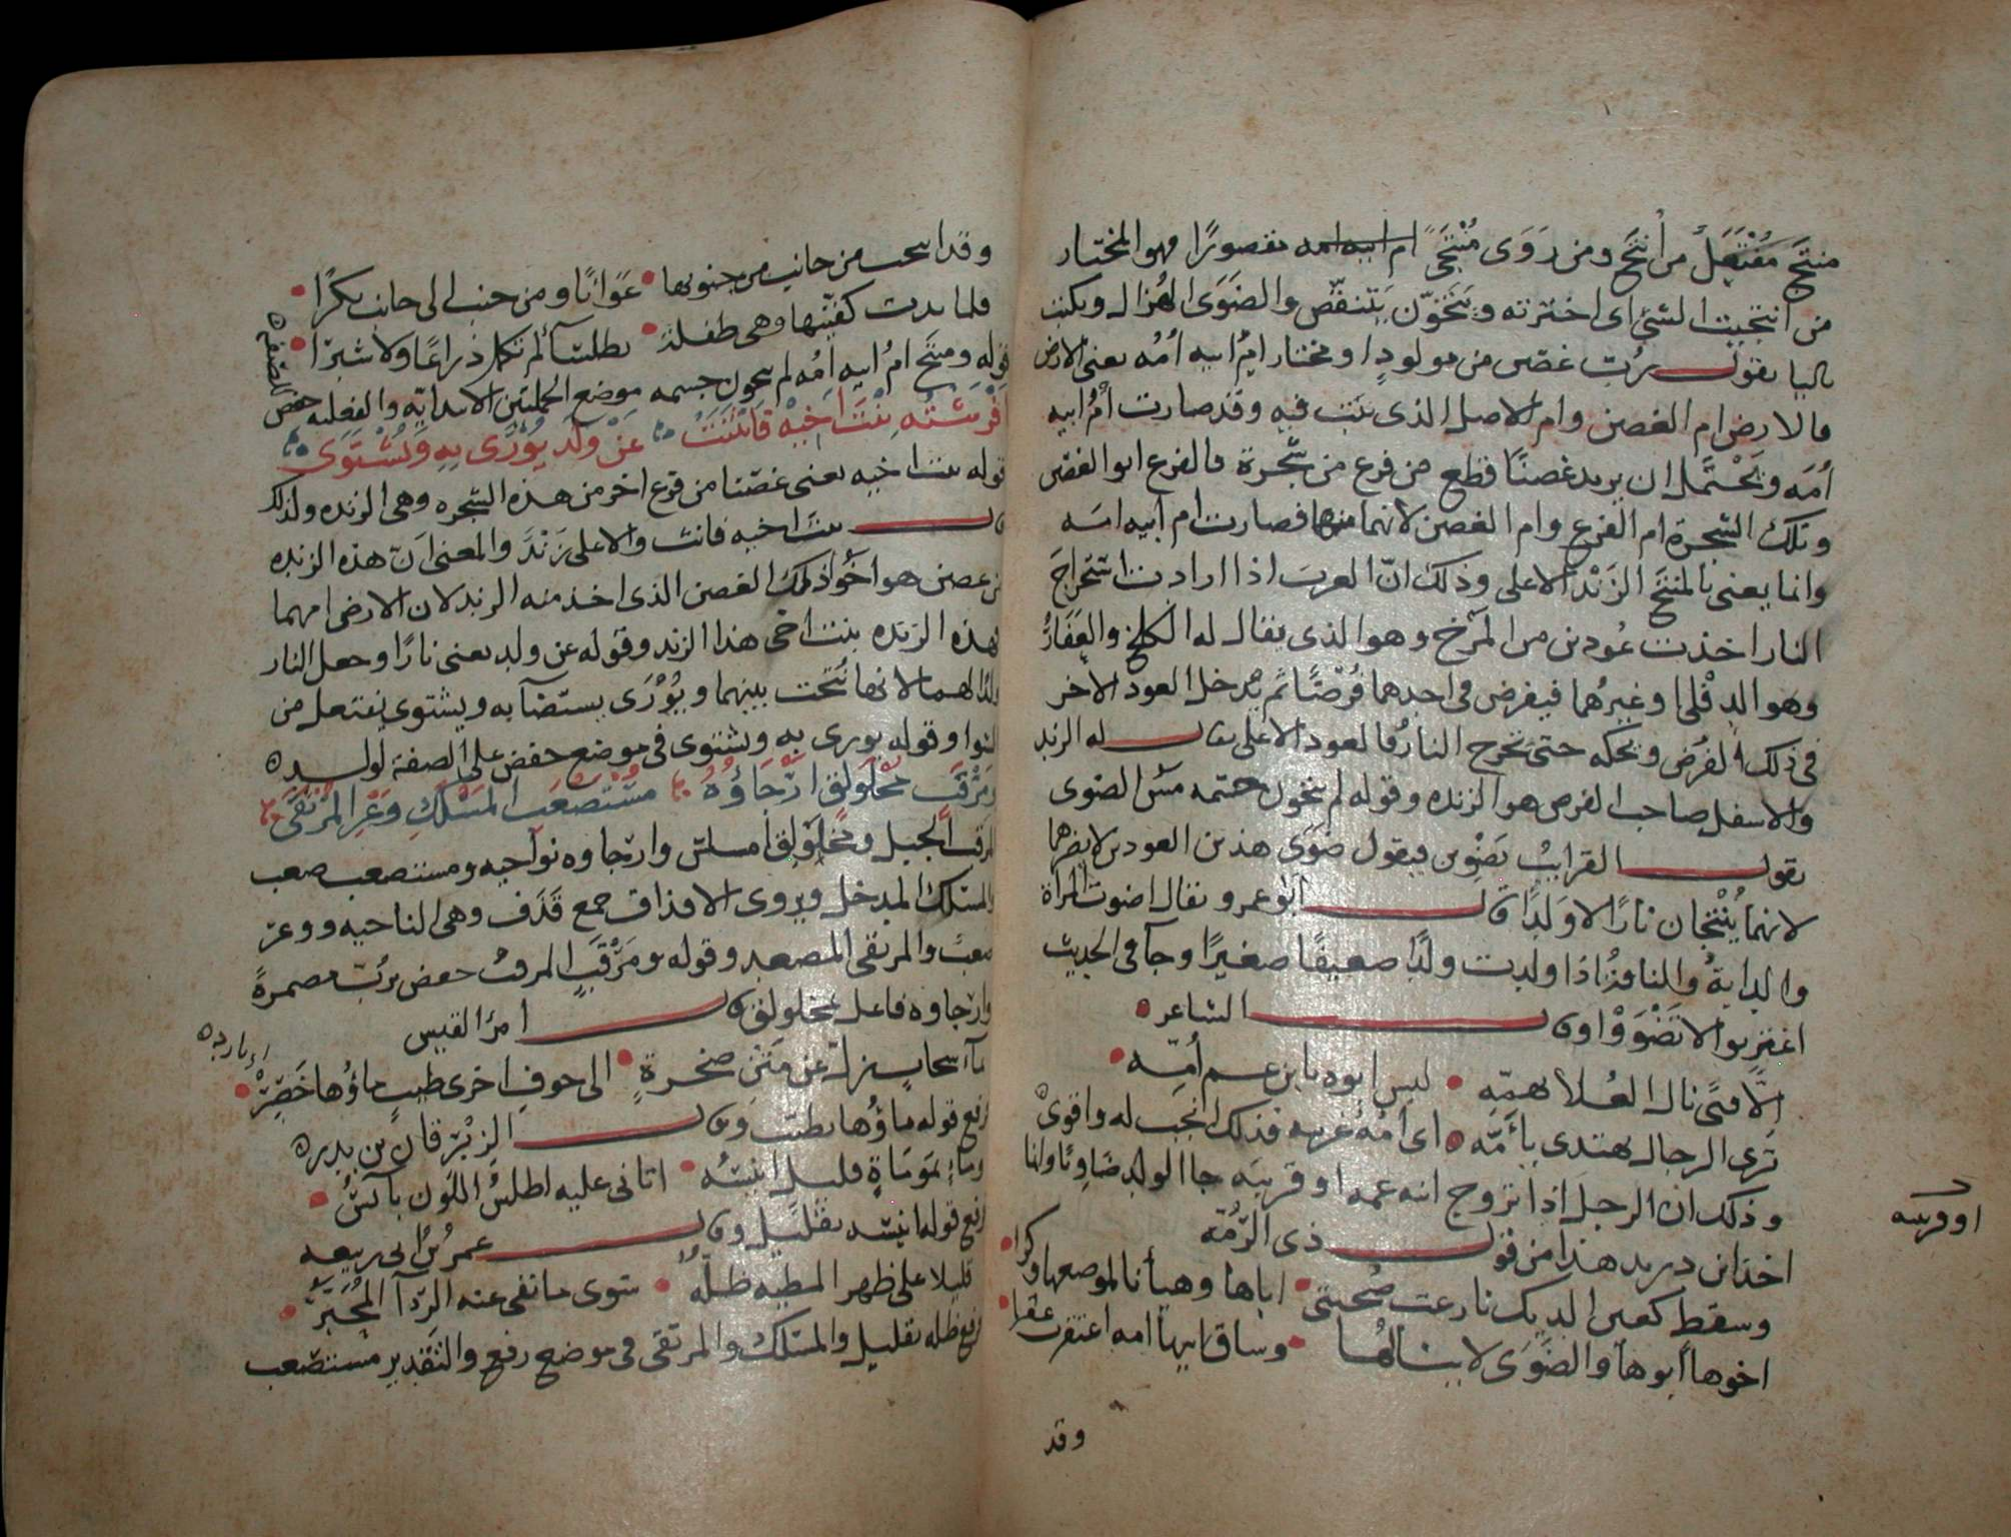 منتج مُفْتَعَلٌ من أنتج ومن رَوَى مُنْتَجًى ام ابيه امه مقصورًا فهو المختار
من انتجيت الشئ اى اخترته و يَتَخَوَّن يتنقّص والضَوَى الهُزال ويكتب
باليا يقول رُبّ غصن من مولودٍ او مختار امُ ابيه أمُه يعنى الارض
فالارض ام الغصن وام الاصل الذى نبت فيه وقد صارت أمُ ابيه
أمَه ويَحْتَمل ان يريد غصنًا قطع من فرع من شجرة فالفرع ابو الغصن
وتلك الشجرة ام الفرع وام الغصن لانهما منهما فصارت ام أبيه امه
وانما يعنى بالمنتج الزَنْد الاعلى وذلك انّ العرب اذا ارادت استخراجَ
النار اخذت عُودين من المَرْخ وهو الذى يقال له الكلخ والعَفَارُ
وهو الدِفْلى او غيرُهما فيفرض فى احدهما فُرْضًا ثم يُدخل العود الاخر
فى ذلك الفُرْض ويحكه حتى تخرج النار فالعود الاعلى يقال له الزند
والاسفل صاحب الفرض هو الزنده وقوله لم يتخون جسمه مسّ الضوى
يقول القرايب تضوين فيقول ضَوَى هذين العودين لا يضرهما
لانهما يُنْتجان نارًا لا وَلَدًا قال ابو عمرو يقال اضوت المراة
والدابةُ والناقةُ اذا ولدت ولدًا ضعيفًا صغيرًا وجآ فى الحديث
اغتربوا لا تَضْوَوْا وقال الشاعر
الّا فتًى نال العُلا بهمِّه • ليس ابوه بابن عم أُمِّه •
تَرى الرجال يهتدى بأَمِّه • اى امُهُ غريبه فذلك انجب له واقوى
وذلك ان الرجل اذا تزوج ابنه عمه او قريبَه جا الولد ضَاوِيًا وانما
او قريبه
اخذ ابن دريد هذا من قول ذى الرُمّه
وسقط كعين الديك نازعت صُحبتى • اباها وهيأنا لموضعها وكرا •
اخوها أبوها والضَوَى لا يضيرُها • وساق ابيها امه اعتقرت عقرا •
وقد
وقد انتجت من جانبٍ من جنوبها • عَوَانًا ومن جنب الى جانب بكرًا •
فلما بدت كفّنتها وهى طفلة • بطلسآ لم تكمل ذراعًا ولا شبرًا •
قوله ومنتج امُ ابيه امُه لم يتخون جسمه موضع الجملتين الابتدائيّه والفعليه خفض
على الصفه
أفْرَشْتُه بِنْتَ اَخِيْهِ فَانْثَنَتْ • عَنْ وَلَدٍ يُوْرَى بِهِ وَيُشْتَوَى
قوله بنت اخيه يعنى غصنا من فرع اخر من هذه الشجره وهى الزنده ولذلك
قال بنت اخيه فانث والاعلى زَنْدٌ والمعنى اَنّ هذه الزنده
من غصن هو اخُو ذلك الغصن الذى اخذ منه الزند لان الارض امهما
فهذه الزنده بنت اخى هذا الزند وقوله عن ولد يعنى نارًا وجعل النار
ولدًا لهما لانها نُتجت بينهما ويُوْرَى يستضآ به ويشتوى يفتعل من
الشوا وقوله يورى به ويشتوى فى موضع خفض على الصفة لولد
وَمَرْقَبٍ مُخْلَوْلِقٍ اَرْجَاؤُهُ • مُسْتَصْعَب المَسْلَكِ وَعْرِ المُرْتَقَى
المرقب الجبل ومُخلَوْلِق أملس وارجاوه نواحيه ومستصعب صعب
والمسلك المدخل ويروى الاقذاف جمع قَذَف وهى الناحيه ووعر
صعبٌ والمرتقى المصعد وقوله ومَرْقَبٍ المرقبُ خفض برُبّ مضمرةً
وارجاوه فاعل مخلولق قال امرُ القيس
بمآ سحابٍ زلّ عن مَتْنِ صخرةٍ • الى جوفِ اخرى طيبٍ ماؤُها خَصِرْ •
رفع قوله ماؤُها بطيّب وقال الزِبْرقان بن بدر
وماءٍ بمَومَاةٍ قليل انيسُه • اتانى عليه اطلسُ اللون بآئسُ •
رفع قوله انيسه بقليل وقال عمرُ بنُ ابى ربيعه
قليلا على ظهر المطيه ظلُّه • سوى ما نفى عنه الرِدآ المُحَبَّرُ •
رفع ظله بقليل والمسلك والمرتقى فى موضع رفع والتقدير مستصعب